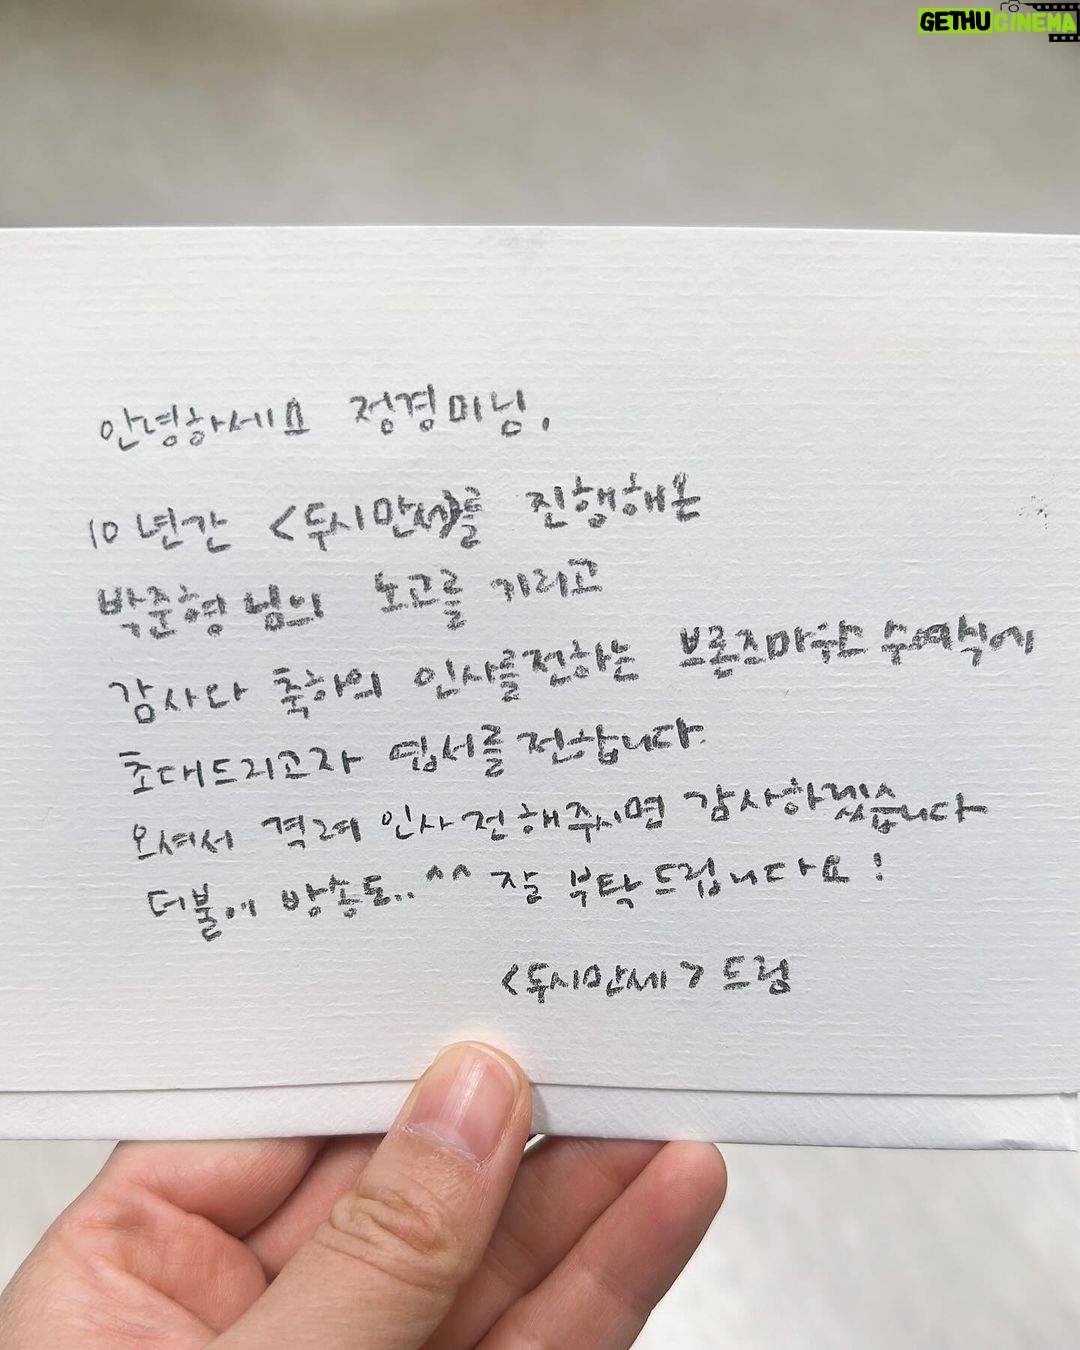 GETHUCINEMA
안녕하세요 정경미님,
10년간 <두시만세>를 진행해온
박준형님의 노고를 기리고
감사와 축하의 인사를전하는 브론즈마우스 수여식에
초대드리고자 엽서를 전합니다.
오셔서 격려 인사 전해주시면 감사하겠습니다
더불어 방송도..^^ 잘 부탁드립니다요!
<두시만세> 드림